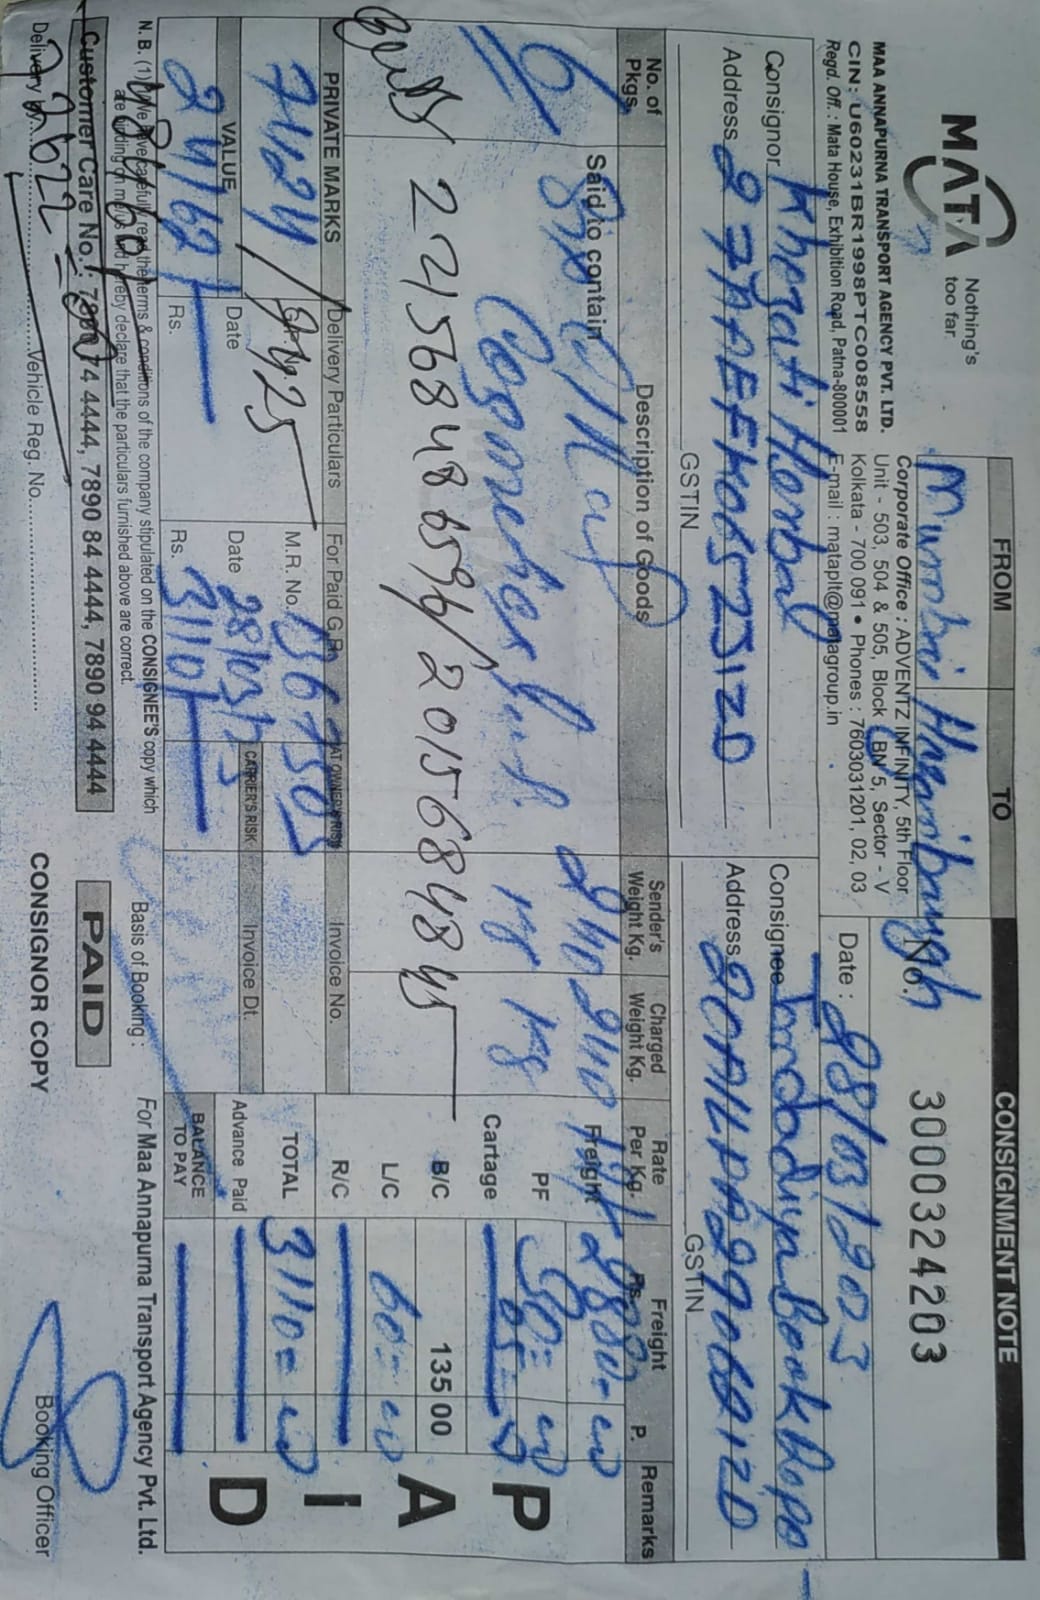 MATA
Nothing's
too far.
FROM
TO
CONSIGNMENT NOTE
Mumbai
Hazaribaugh
No.
3000324203
MAA ANNAPURNA TRANSPORT AGENCY PVT. LTD.
CIN: U60231BR1998PTC008558
Regd. Off. : Mata House, Exhibition Road, Patna-800001
Corporate Office : ADVENTZ INFINITY, 5th Floor
Unit - 503, 504 & 505, Block BN 5, Sector - V
Kolkata - 700 091 • Phones : 7603031201, 02, 03
E-mail : matapl@matagroup.in
Date : 28/03/2023
Consignor Khojati Herbal
Address 27AAEFK0523
GSTIN
Consignee
Address
GSTIN
No. of
Pkgs.
Said to contain
Description of Goods
Sender's
Weight Kg.
Charged
Weight Kg.
Rate
Per Kg.
Freight
Rs.
P.
Remarks
6
240
240
Freight
PF
Cartage
B/C
135 00
L/C
60
R/C
TOTAL
3110
Advance Paid
BALANCE
TO PAY
PAID
221568486596/201568484845
PRIVATE MARKS
Delivery Particulars
For Paid G.Rn.
AT OWNER'S RISK
Invoice No.
7424
M.R. No.
VALUE
Date
Date 28/03/23
CARRIER'S RISK
Invoice Dt.
24162
Rs.
Rs. 3110
N. B. (1) I/We have carefully read the terms & conditions of the company stipulated on the CONSIGNEE'S copy which
are binding on me/us and hereby declare that the particulars furnished above are correct.
Basis of Booking :
For Maa Annapurna Transport Agency Pvt. Ltd.
Customer Care No. : 7890 74 4444, 7890 84 4444, 7890 94 4444
PAID
Delivery by..............Vehicle Reg. No..............
CONSIGNOR COPY
Booking Officer